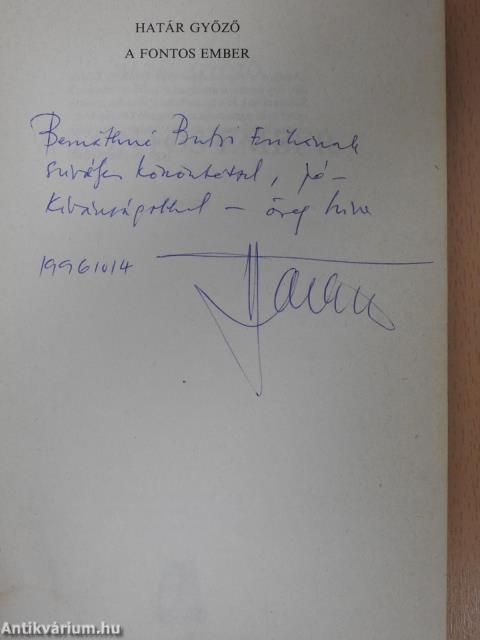 HATÁR GYŐZŐ
A FONTOS EMBER
Bernáthné Butsi Erikának
szivélyes köszöntéssel, jó-
kivánságokkal – öreg hive
19961014
Határ
Antikvárium.hu